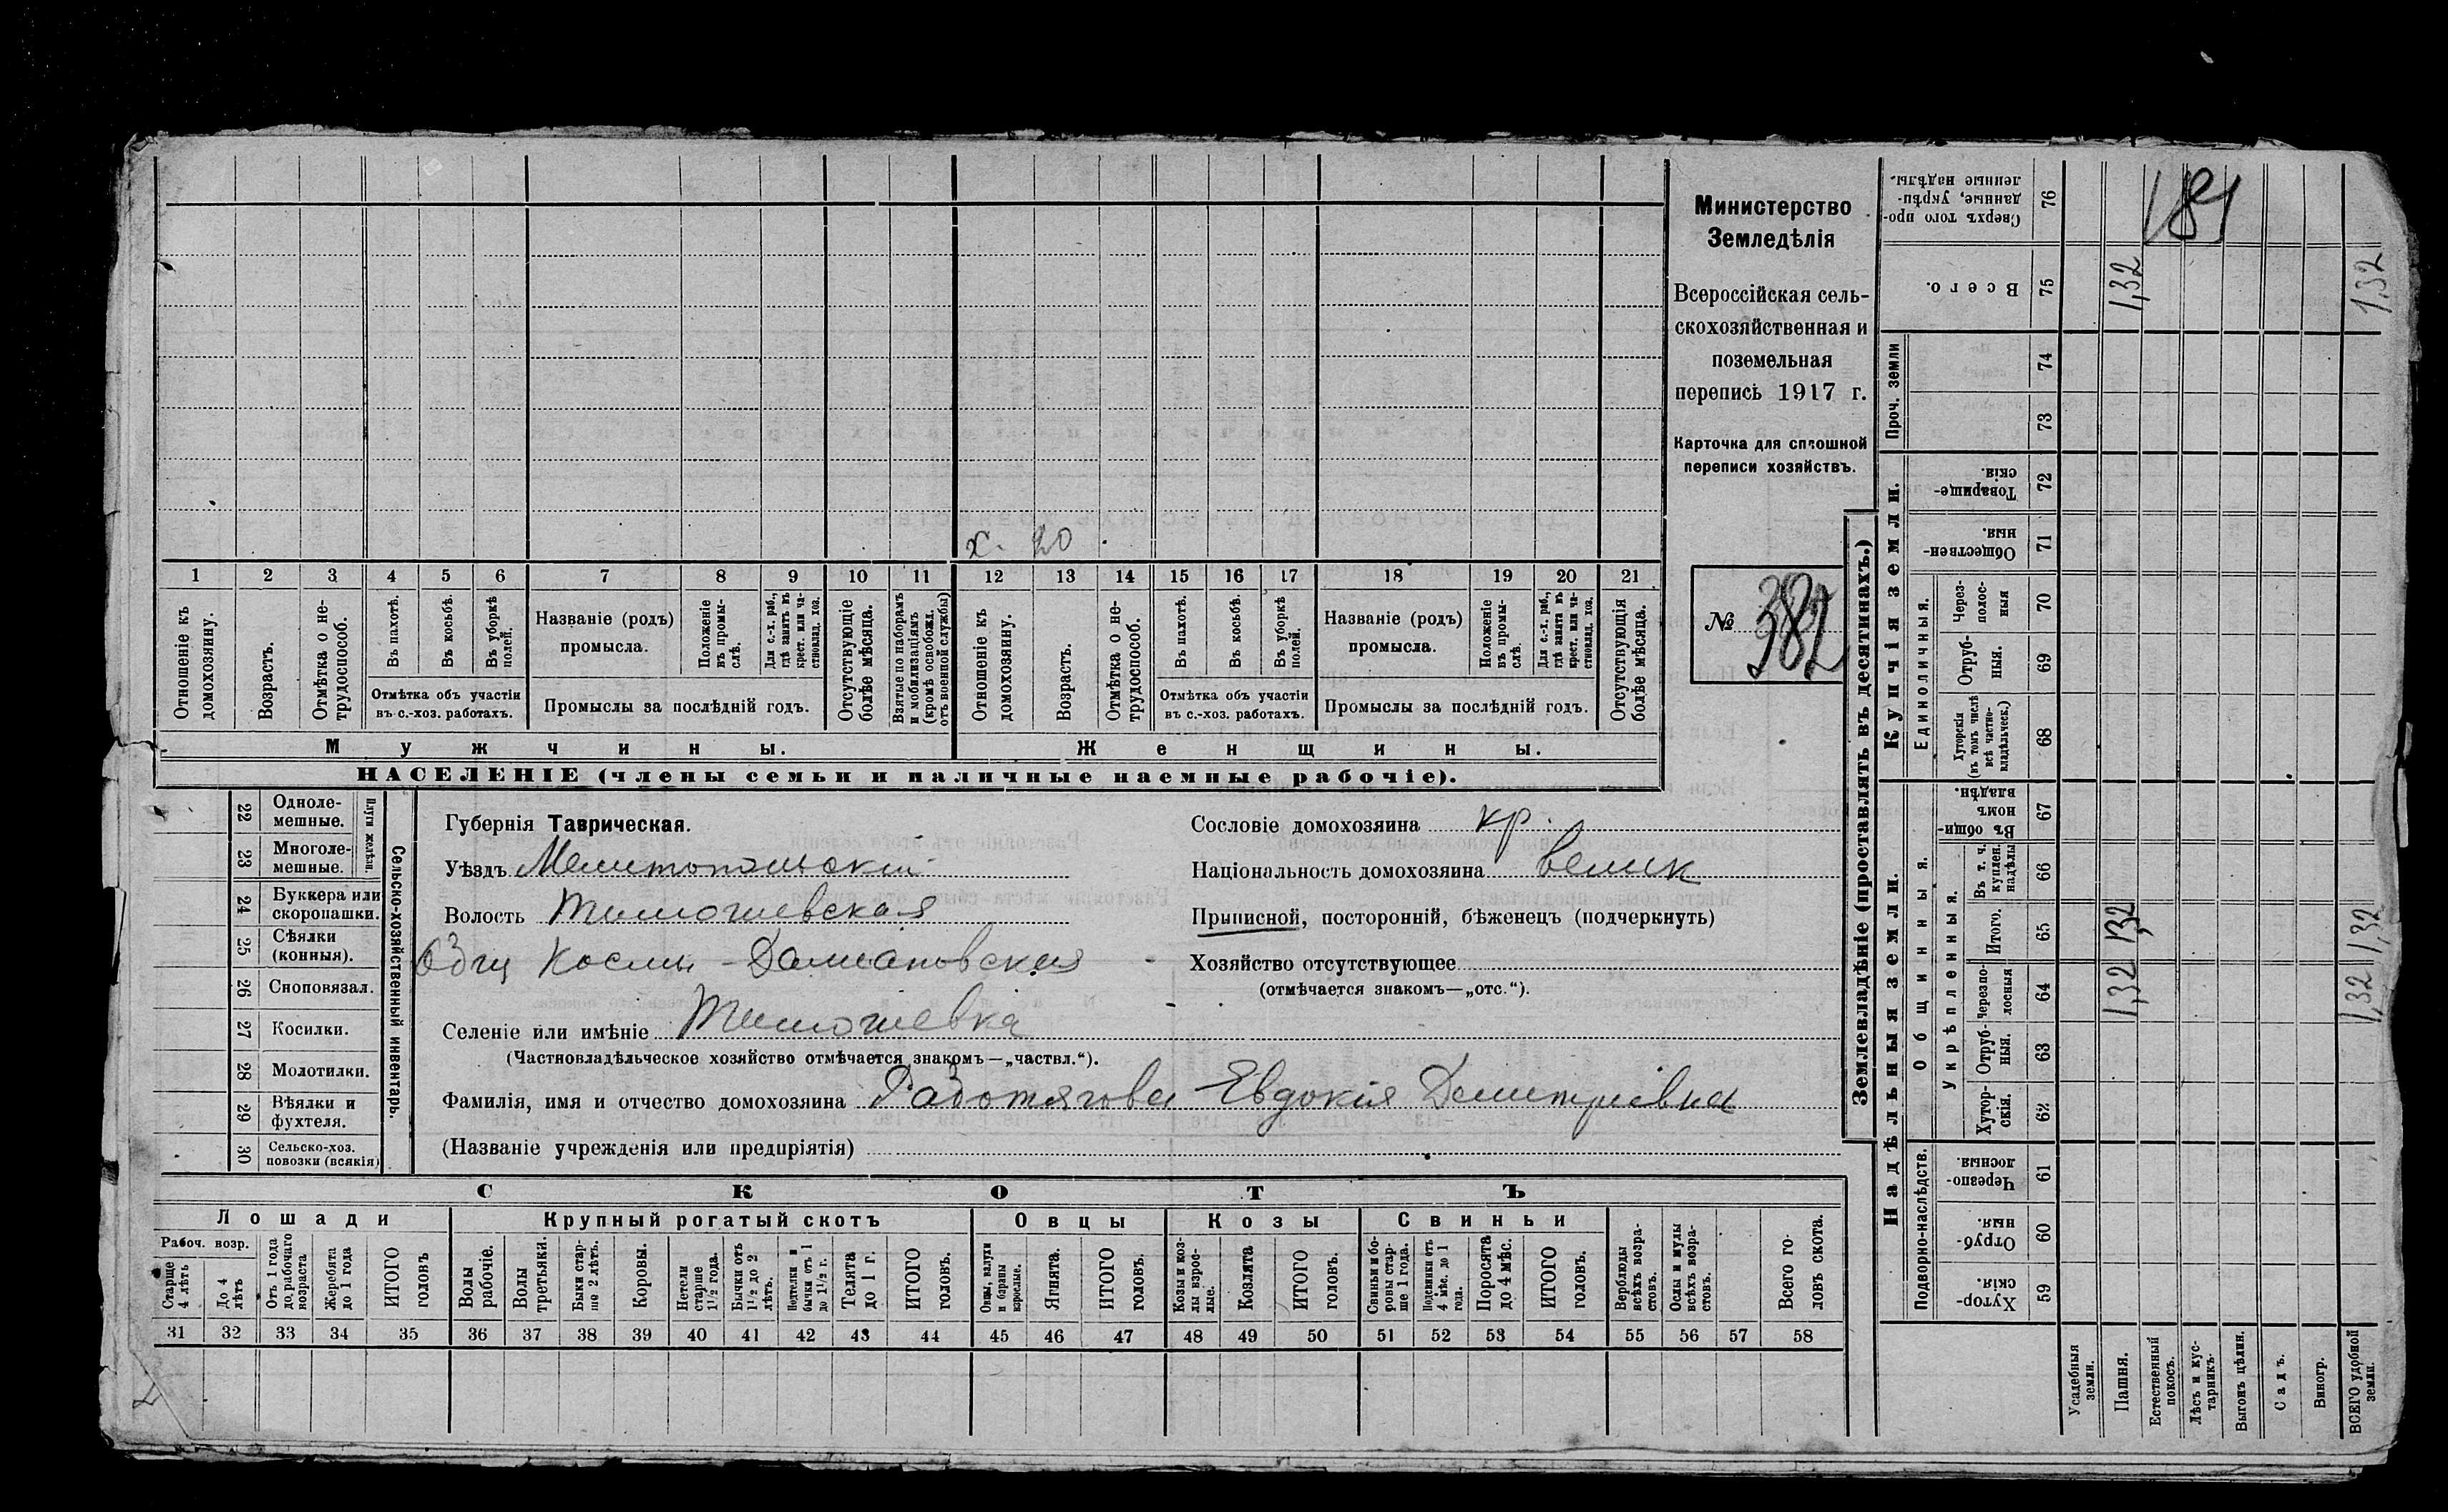 Министерство
Земледѣлія
Всероссійская сель-
скохозяйственная и
поземельная
перепись 1917 г.
Карточка для сплошной
переписи хозяйствъ.
№ 382
181
х. 20
1 2 3 4 5 6 7 8 9 10 11 12 13 14 15 16 17 18 19 20 21
Отношеніе къ домохозяину.
Возрастъ.
Отмѣтка о не-трудоспособ.
Въ пахотѣ.
Въ косьбѣ.
Въ уборкѣ полей.
Отмѣтка объ участіи
въ с.-хоз. работахъ.
Названіе (родъ)
промысла.
Положеніе въ промы-слѣ.
Для с.-х. раб., гдѣ занятъ въ крест. или ча-стновлад. хоз.
Промыслы за послѣдній годъ.
Отсутствующіе болѣе мѣсяца.
Взятые по наборамъ и мобилизаціямъ (кромѣ освобожд. отъ военной службы)
Отношеніе къ домохозяину.
Возрастъ.
Отмѣтка о не-трудоспособ.
Въ пахотѣ.
Въ косьбѣ.
Въ уборкѣ полей.
Отмѣтка объ участіи
въ с.-хоз. работахъ.
Названіе (родъ)
промысла.
Положеніе въ промы-слѣ.
Для с.-х. раб., гдѣ занята въ крест. или ча-стновлад. хоз.
Промыслы за послѣдній годъ.
Отсутствующія болѣе мѣсяца.
Мужчины.
Женщины.
НАСЕЛЕНІЕ (члены семьи и наличные наемные рабочіе).
Сельско-хозяйственный инвентарь.
Плуги желѣзн.
22 Одноле-мешные.
23 Многоле-мешные.
24 Буккера или скоропашки.
25 Сѣялки (конныя).
26 Сноповязал.
27 Косилки.
28 Молотилки.
29 Вѣялки и фухтеля.
30 Сельско-хоз. повозки (всякія)
Губернія Таврическая.
Уѣздъ Мелитопольскій
Волость Тимошевская
Общ Косми-Даміановская
Селеніе или имѣніе Тимошевка
(Частновладѣльческое хозяйство отмѣчается знакомъ—„частвл.“).
Фамилія, имя и отчество домохозяина Работягова Евдокія Димитріевна
(Названіе учрежденія или предпріятія)
Сословіе домохозяина кр.
Національность домохозяина велик
Приписной, посторонній, бѣженецъ (подчеркнуть)
Хозяйство отсутствующее
(отмѣчается знакомъ—„отс.“).
СКОТЪ
Лошади
Рабоч. возр.
Старше 4 лѣтъ
До 4 лѣтъ
Отъ 1 года до рабочаго возраста
Жеребята до 1 года
ИТОГО головъ
Крупный рогатый скотъ
Волы рабочіе.
Волы третьяки.
Быки стар-ше 2 лѣтъ.
Коровы.
Нетели старше 1½ года.
Бычки отъ 1½ до 2 лѣтъ.
Подтелки и бычки отъ 1 до 1½ г.
Телята до 1 г.
ИТОГО головъ.
Овцы
Овцы, валухи и бараны взрослые.
Ягнята.
ИТОГО головъ.
Козы
Козы и коз-лы взрос-лые.
Козлята
ИТОГО головъ.
Свиньи
Свиньи и бо-ровы стар-ше 1 года.
Подсвинки отъ 4 мѣс. до 1 года.
Поросята до 4 мѣс.
ИТОГО головъ.
Верблюды всѣхъ возра-стовъ.
Ослы и мулы всѣхъ возра-стовъ.
Всего го-ловъ скота.
31 32 33 34 35 36 37 38 39 40 41 42 43 44 45 46 47 48 49 50 51 52 53 54 55 56 57 58
Землевладѣніе (проставлять въ десятинахъ.)
Надѣльныя земли.
Подворно-наслѣдств.
Хутор-скія. 59
Отруб-ныя. 60
Черезпо-лосныя. 61
Общинныя.
Укрѣпленныя.
Хутор-скія. 62
Отруб-ныя. 63
Черезпо-лосныя 64
Итого. 65
Въ т. ч. куплен. надѣлы 66
Въ общи-номъ владѣн. 67
Купчія земли.
Единоличныя.
Хуторскія (въ томъ числѣ всѣ частно-владѣльческ.) 68
Отруб-ныя. 69
Через-полос-ныя 70
Обществен-ныя. 71
Товарище-скія. 72
Проч. земли
73
74
Всего. 75
Сверхъ того про-данные, укрѣп-ленные надѣлы. 76
Усадебныя земли.
Пашня. 1,32 1,32 1,32
Естественный покосъ.
Лѣсъ и кус-тарникъ.
Выгонъ цѣлин.
Садъ.
Виногр.
ВСЕГО удобной земли. 1,32 1,32 1,32